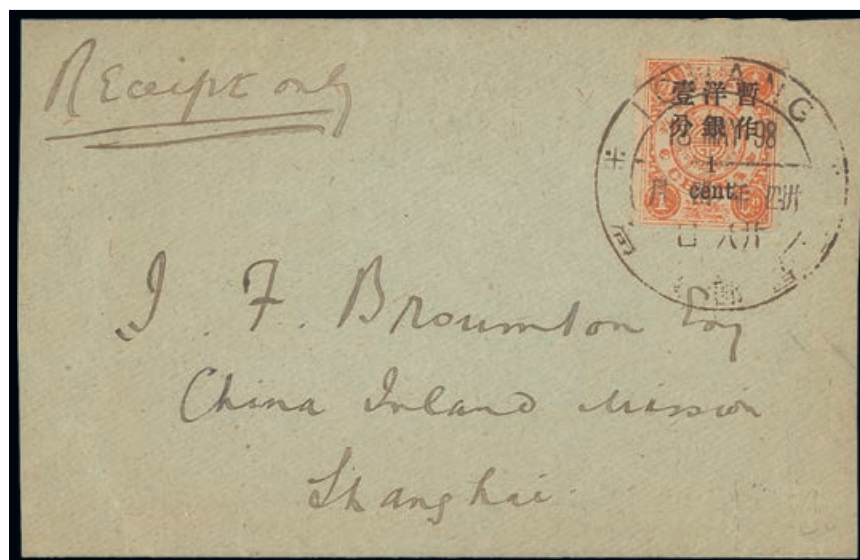 Receipt only
暫作
洋銀
壹分
1
cent.
MAY 98
J. F. Broumton Esq
China Inland Mission
Shanghai.